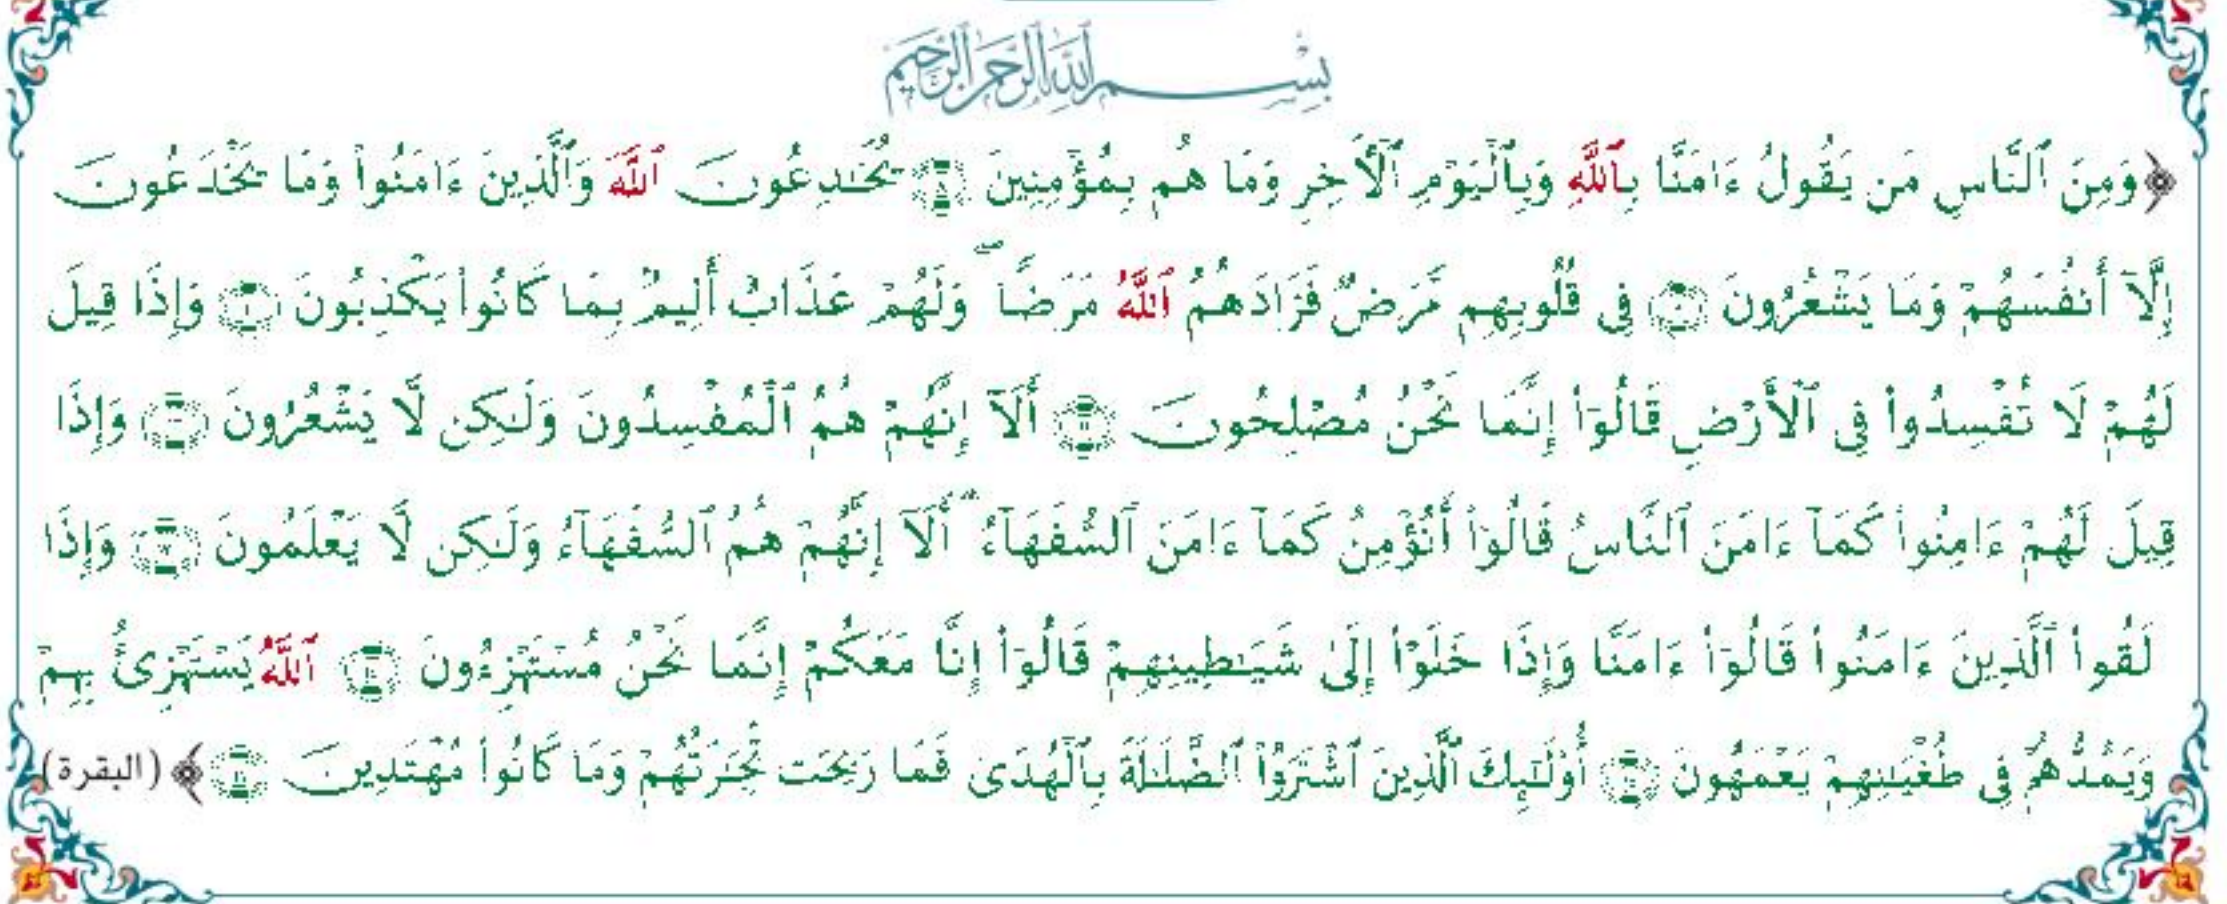 بِسْمِ ٱللَّهِ ٱلرَّحْمَٰنِ ٱلرَّحِيمِ
﴿وَمِنَ ٱلنَّاسِ مَن يَقُولُ ءَامَنَّا بِٱللَّهِ وَبِٱلْيَوْمِ ٱلْأَخِرِ وَمَا هُم بِمُؤْمِنِينَ ۝٨ يُخَٰدِعُونَ ٱللَّهَ وَٱلَّذِينَ ءَامَنُوا۟ وَمَا يَخْدَعُونَ
إِلَّآ أَنفُسَهُمْ وَمَا يَشْعُرُونَ ۝٩ فِى قُلُوبِهِم مَّرَضٌ فَزَادَهُمُ ٱللَّهُ مَرَضًا ۖ وَلَهُمْ عَذَابٌ أَلِيمٌۢ بِمَا كَانُوا۟ يَكْذِبُونَ ۝١٠ وَإِذَا قِيلَ
لَهُمْ لَا تُفْسِدُوا۟ فِى ٱلْأَرْضِ قَالُوٓا۟ إِنَّمَا نَحْنُ مُصْلِحُونَ ۝١١ أَلَآ إِنَّهُمْ هُمُ ٱلْمُفْسِدُونَ وَلَٰكِن لَّا يَشْعُرُونَ ۝١٢ وَإِذَا
قِيلَ لَهُمْ ءَامِنُوا۟ كَمَآ ءَامَنَ ٱلنَّاسُ قَالُوٓا۟ أَنُؤْمِنُ كَمَآ ءَامَنَ ٱلسُّفَهَآءُ ۗ أَلَآ إِنَّهُمْ هُمُ ٱلسُّفَهَآءُ وَلَٰكِن لَّا يَعْلَمُونَ ۝١٣ وَإِذَا
لَقُوا۟ ٱلَّذِينَ ءَامَنُوا۟ قَالُوٓا۟ ءَامَنَّا وَإِذَا خَلَوْا۟ إِلَىٰ شَيَٰطِينِهِمْ قَالُوٓا۟ إِنَّا مَعَكُمْ إِنَّمَا نَحْنُ مُسْتَهْزِءُونَ ۝١٤ ٱللَّهُ يَسْتَهْزِئُ بِهِمْ
وَيَمُدُّهُمْ فِى طُغْيَٰنِهِمْ يَعْمَهُونَ ۝١٥ أُو۟لَٰٓئِكَ ٱلَّذِينَ ٱشْتَرَوُا۟ ٱلضَّلَٰلَةَ بِٱلْهُدَىٰ فَمَا رَبِحَت تِّجَٰرَتُهُمْ وَمَا كَانُوا۟ مُهْتَدِينَ ۝١٦﴾ (البقرة)